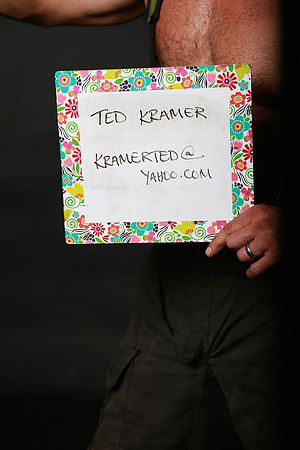 TED KRAMER
KRAMERTED@
YAHOO.COM